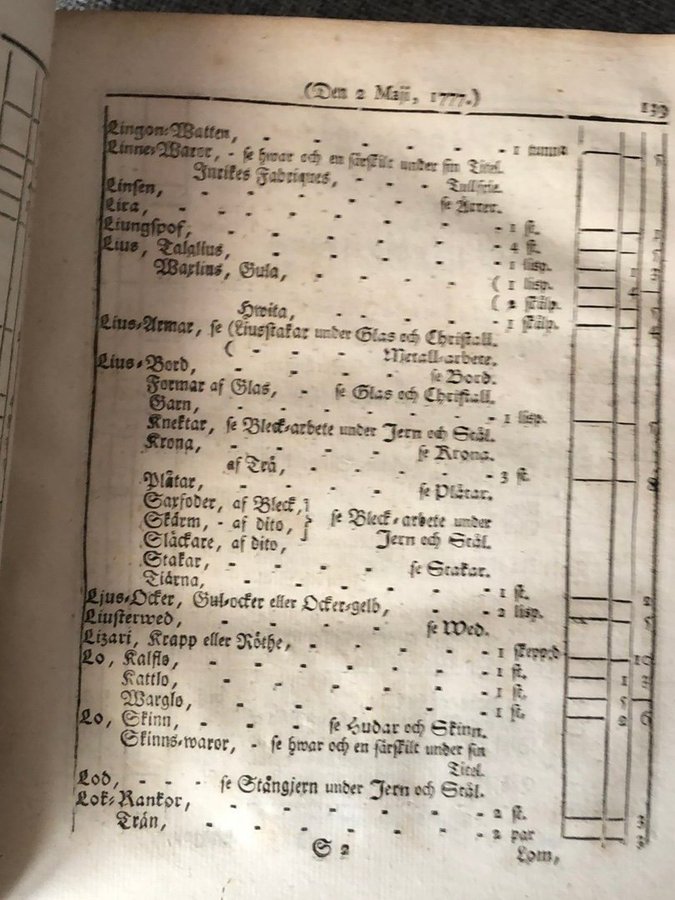 (Den 2 Maji, 1777.) 139
Lingon-Watten, - - - - - 1 tunna
Linne-Waror, - se hwar och en särskilt under sin Titel.
Inrikes Fabriques, - - - Tullfrie.
Linsen, - - - - se Ärter.
Lira, - - - - - - 1 st.
Liungspof, - - - - - 4 st.
Lius, Talglius, - - - - - 1 lisp.
Waxlius, Gula, - - - - ( 1 lisp.
( 2 skålp.
Hwita, - - - - 1 skålp.
Lius-Armar, se (Liusstakar under Glas och Christall.
( - - Metall-arbete.
Lius-Bord, - - - - se Bord.
Formar af Glas, - se Glas och Christall.
Garn, - - - - - - 1 lisp.
Knektar, se Bleck-arbete under Jern och Stål.
Krona, - - - - se Krona.
af Trä, - - - - - 3 st.
Plåtar, - - - - se Plåtar.
Saxfoder, af Bleck,
Skärm, - af dito, } se Bleck-arbete under
Släckare, af dito, Jern och Stål.
Stakar, - - - - se Stakar.
Tiärna, - - - - - - 1 st.
Ljus-Ocker, Gul-ocker eller Ocker-gelb, - - 2 lisp.
Liusterwed, - - - - se Wed.
Lizari, Krapp eller Röthe, - - - - 1 skeppd
Lo, Kalflo, - - - - - - 1 st.
Kattlo, - - - - - - 1 st.
Warglo, - - - - - - 1 st.
Lo, Skinn, - - - se Hudar och Skinn.
Skinns-waror, - se hwar och en särskilt under sin
Titel.
Lod, - - - se Stångjern under Jern och Stål.
Lok-Rankor, - - - - - - 2 st.
Trän, - - - - - - 2 par
S 2 Lom,